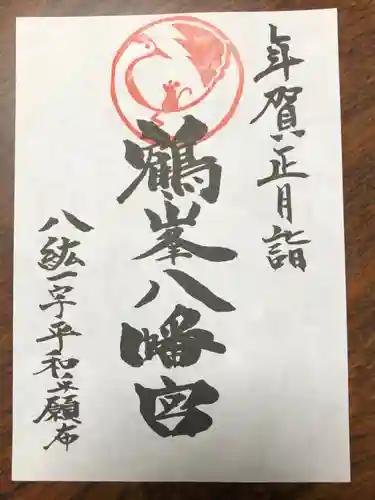 年賀正月詣
鶴峯八幡宮
八紘一宇平和を願布